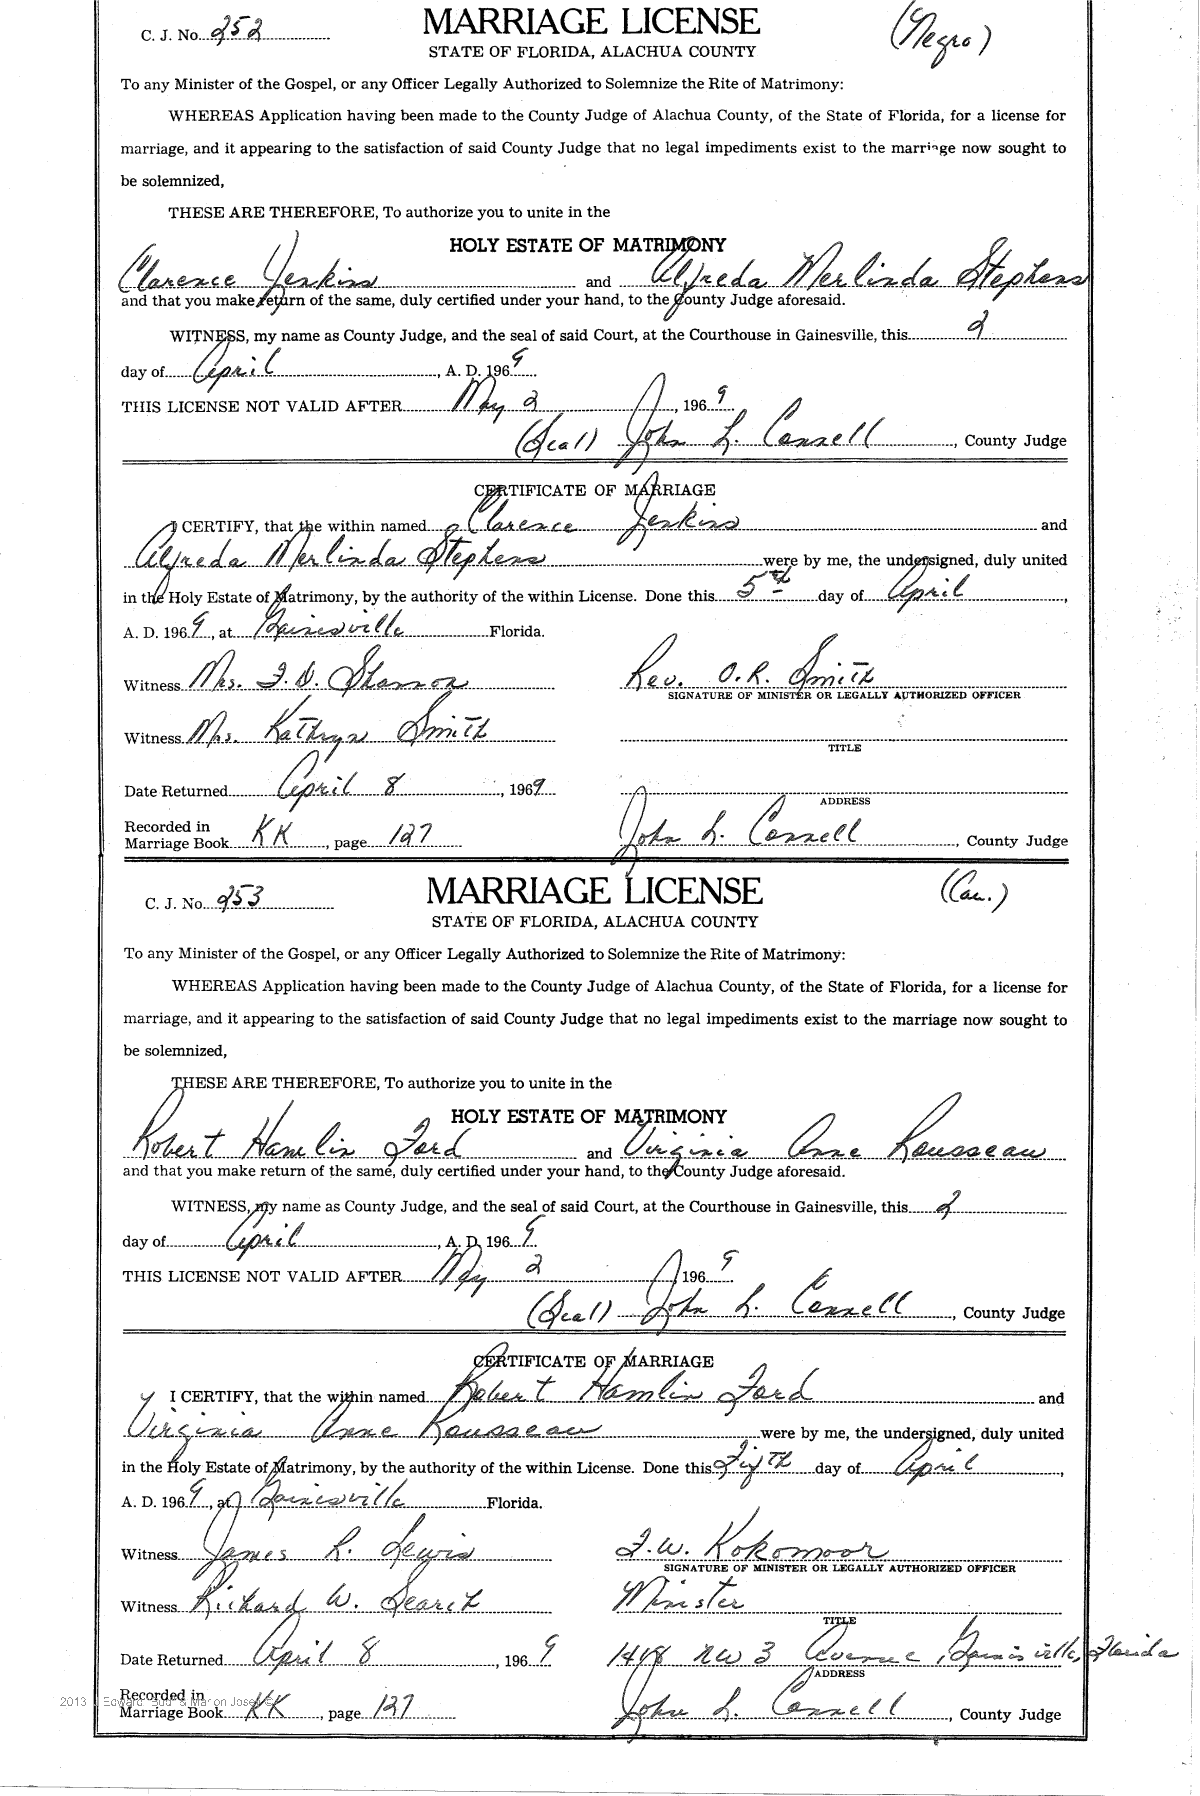 C. J. No. 252
MARRIAGE LICENSE
(Negro)
STATE OF FLORIDA, ALACHUA COUNTY
To any Minister of the Gospel, or any Officer Legally Authorized to Solemnize the Rite of Matrimony:
WHEREAS Application having been made to the County Judge of Alachua County, of the State of Florida, for a license for
marriage, and it appearing to the satisfaction of said County Judge that no legal impediments exist to the marriage now sought to
be solemnized,
THESE ARE THEREFORE, To authorize you to unite in the
HOLY ESTATE OF MATRIMONY
Clarence Jenkins and Alfreda Merlinda Stephens
and that you make return of the same, duly certified under your hand, to the County Judge aforesaid.
WITNESS, my name as County Judge, and the seal of said Court, at the Courthouse in Gainesville, this 2
day of April, A. D. 1969
THIS LICENSE NOT VALID AFTER May 2, 1969
(Seal) John L. Connell, County Judge
CERTIFICATE OF MARRIAGE
I CERTIFY, that the within named Clarence Jenkins and
Alfreda Merlinda Stephens were by me, the undersigned, duly united
in the Holy Estate of Matrimony, by the authority of the within License. Done this 5th day of April,
A. D. 1969, at Gainesville Florida.
Witness Mrs. I. D. Shannon Rev. O. R. Smith
SIGNATURE OF MINISTER OR LEGALLY AUTHORIZED OFFICER
Witness Mrs. Kathryn Smith
TITLE
Date Returned April 8, 1969
ADDRESS
Recorded in
Marriage Book KK, page 127 John L. Connell, County Judge
C. J. No. 253
MARRIAGE LICENSE
(Cau.)
STATE OF FLORIDA, ALACHUA COUNTY
To any Minister of the Gospel, or any Officer Legally Authorized to Solemnize the Rite of Matrimony:
WHEREAS Application having been made to the County Judge of Alachua County, of the State of Florida, for a license for
marriage, and it appearing to the satisfaction of said County Judge that no legal impediments exist to the marriage now sought to
be solemnized,
THESE ARE THEREFORE, To authorize you to unite in the
HOLY ESTATE OF MATRIMONY
Robert Hamlin Ford and Virginia Anne Rousseau
and that you make return of the same, duly certified under your hand, to the County Judge aforesaid.
WITNESS, my name as County Judge, and the seal of said Court, at the Courthouse in Gainesville, this 2
day of April, A. D. 1969
THIS LICENSE NOT VALID AFTER May 2 1969
(Seal) John L. Connell, County Judge
CERTIFICATE OF MARRIAGE
I CERTIFY, that the within named Robert Hamlin Ford and
Virginia Anne Rousseau were by me, the undersigned, duly united
in the Holy Estate of Matrimony, by the authority of the within License. Done this Fifth day of April,
A. D. 1969, at Gainesville Florida.
Witness James R. Lewis F. W. Kokomoor
SIGNATURE OF MINISTER OR LEGALLY AUTHORIZED OFFICER
Witness Richard W. Minister
TITLE
Date Returned April 8, 1969 1418 NW 3 Avenue, Gainesville, Florida
ADDRESS
Recorded in
Marriage Book KK, page 127 John L. Connell, County Judge
2013